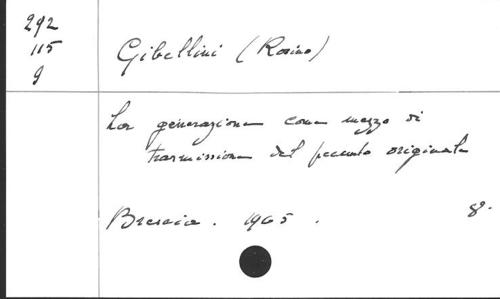 292
115
9
Gibellini (Rosino)
La generazione come mezzo di
trasmissione del peccato originale
Brescia. 1965. 8°.